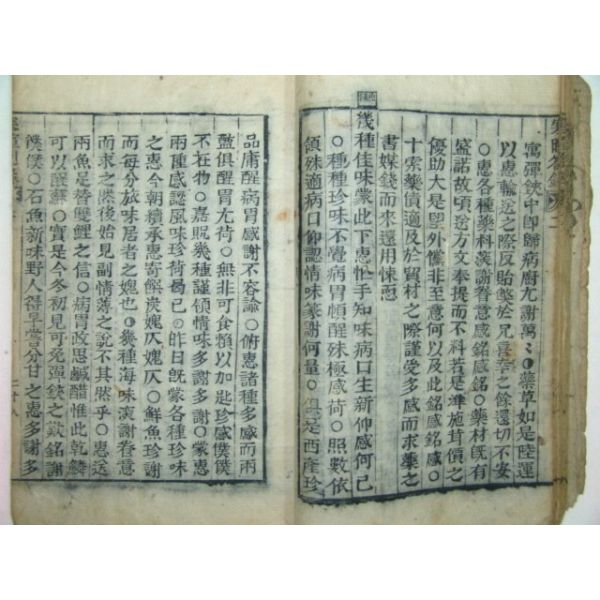 寓彈鋏中卽歸病廚尤謝萬〻○藥草如是陸運
以惠輸送之際反貽弊於兄喜幸之餘還切不安
○惠各種藥料深謝眷意感銘感銘○藥材旣有
盛諾故頃送方文奉提而不料若是準施茸價之
優助大是望外慚非至意何以及此銘感銘感○
十索藥債適及於貿材之際謹受多感而求藥之
書媒錢而來還用悚恧
幾種佳味蒙此下惠恠乎知味病口生新仰感何已
○種種珍味不覺病胃頓醒殊極感荷○照數依
領殊適病口仰認情味篆謝何量○俱是西產珍
品庸醒病胃感謝不容諭○俯惠諸種多感而兩
盬俱醒胃尤荷○無非可食類以加匙珍感僕僕
不在物○嘉貺幾種謹領情味多謝多謝○蒙惠
兩種感認風味珍荷曷已○昨日旣蒙各種珍味
之惠今朝續承惠寄饌炭媿仄媿仄○鮮魚珍謝
而每分旅味居者之媿也○幾種海味深謝眷意
而求之然後始見副情薄之說不其然乎○惠送
兩魚足替雙鯉之信○病胃政思鹹醋惟此乾鱗
可以醒蘇○實是今冬初見可免彈鋏之歎銘謝
僕僕○石魚新味野人得早嘗分甘之惠多謝多